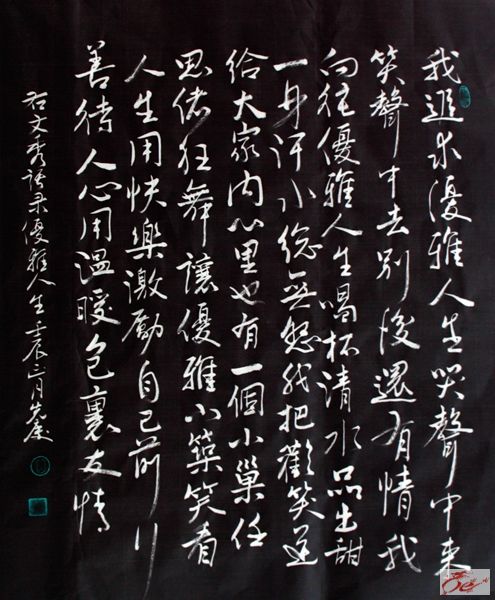 我追求優雅人生哭聲中来
笑聲中去别後還有情我
向往優雅人生喝杯清水品出甜
一身汗水總無怨我把歡笑送
给大家内心里也有一個小巢任
思緒狂舞讓優雅小築笑看
人生用快樂激勵自己前行
善待人心用温暖包裹友情
文秀語录優雅人生壬辰三月